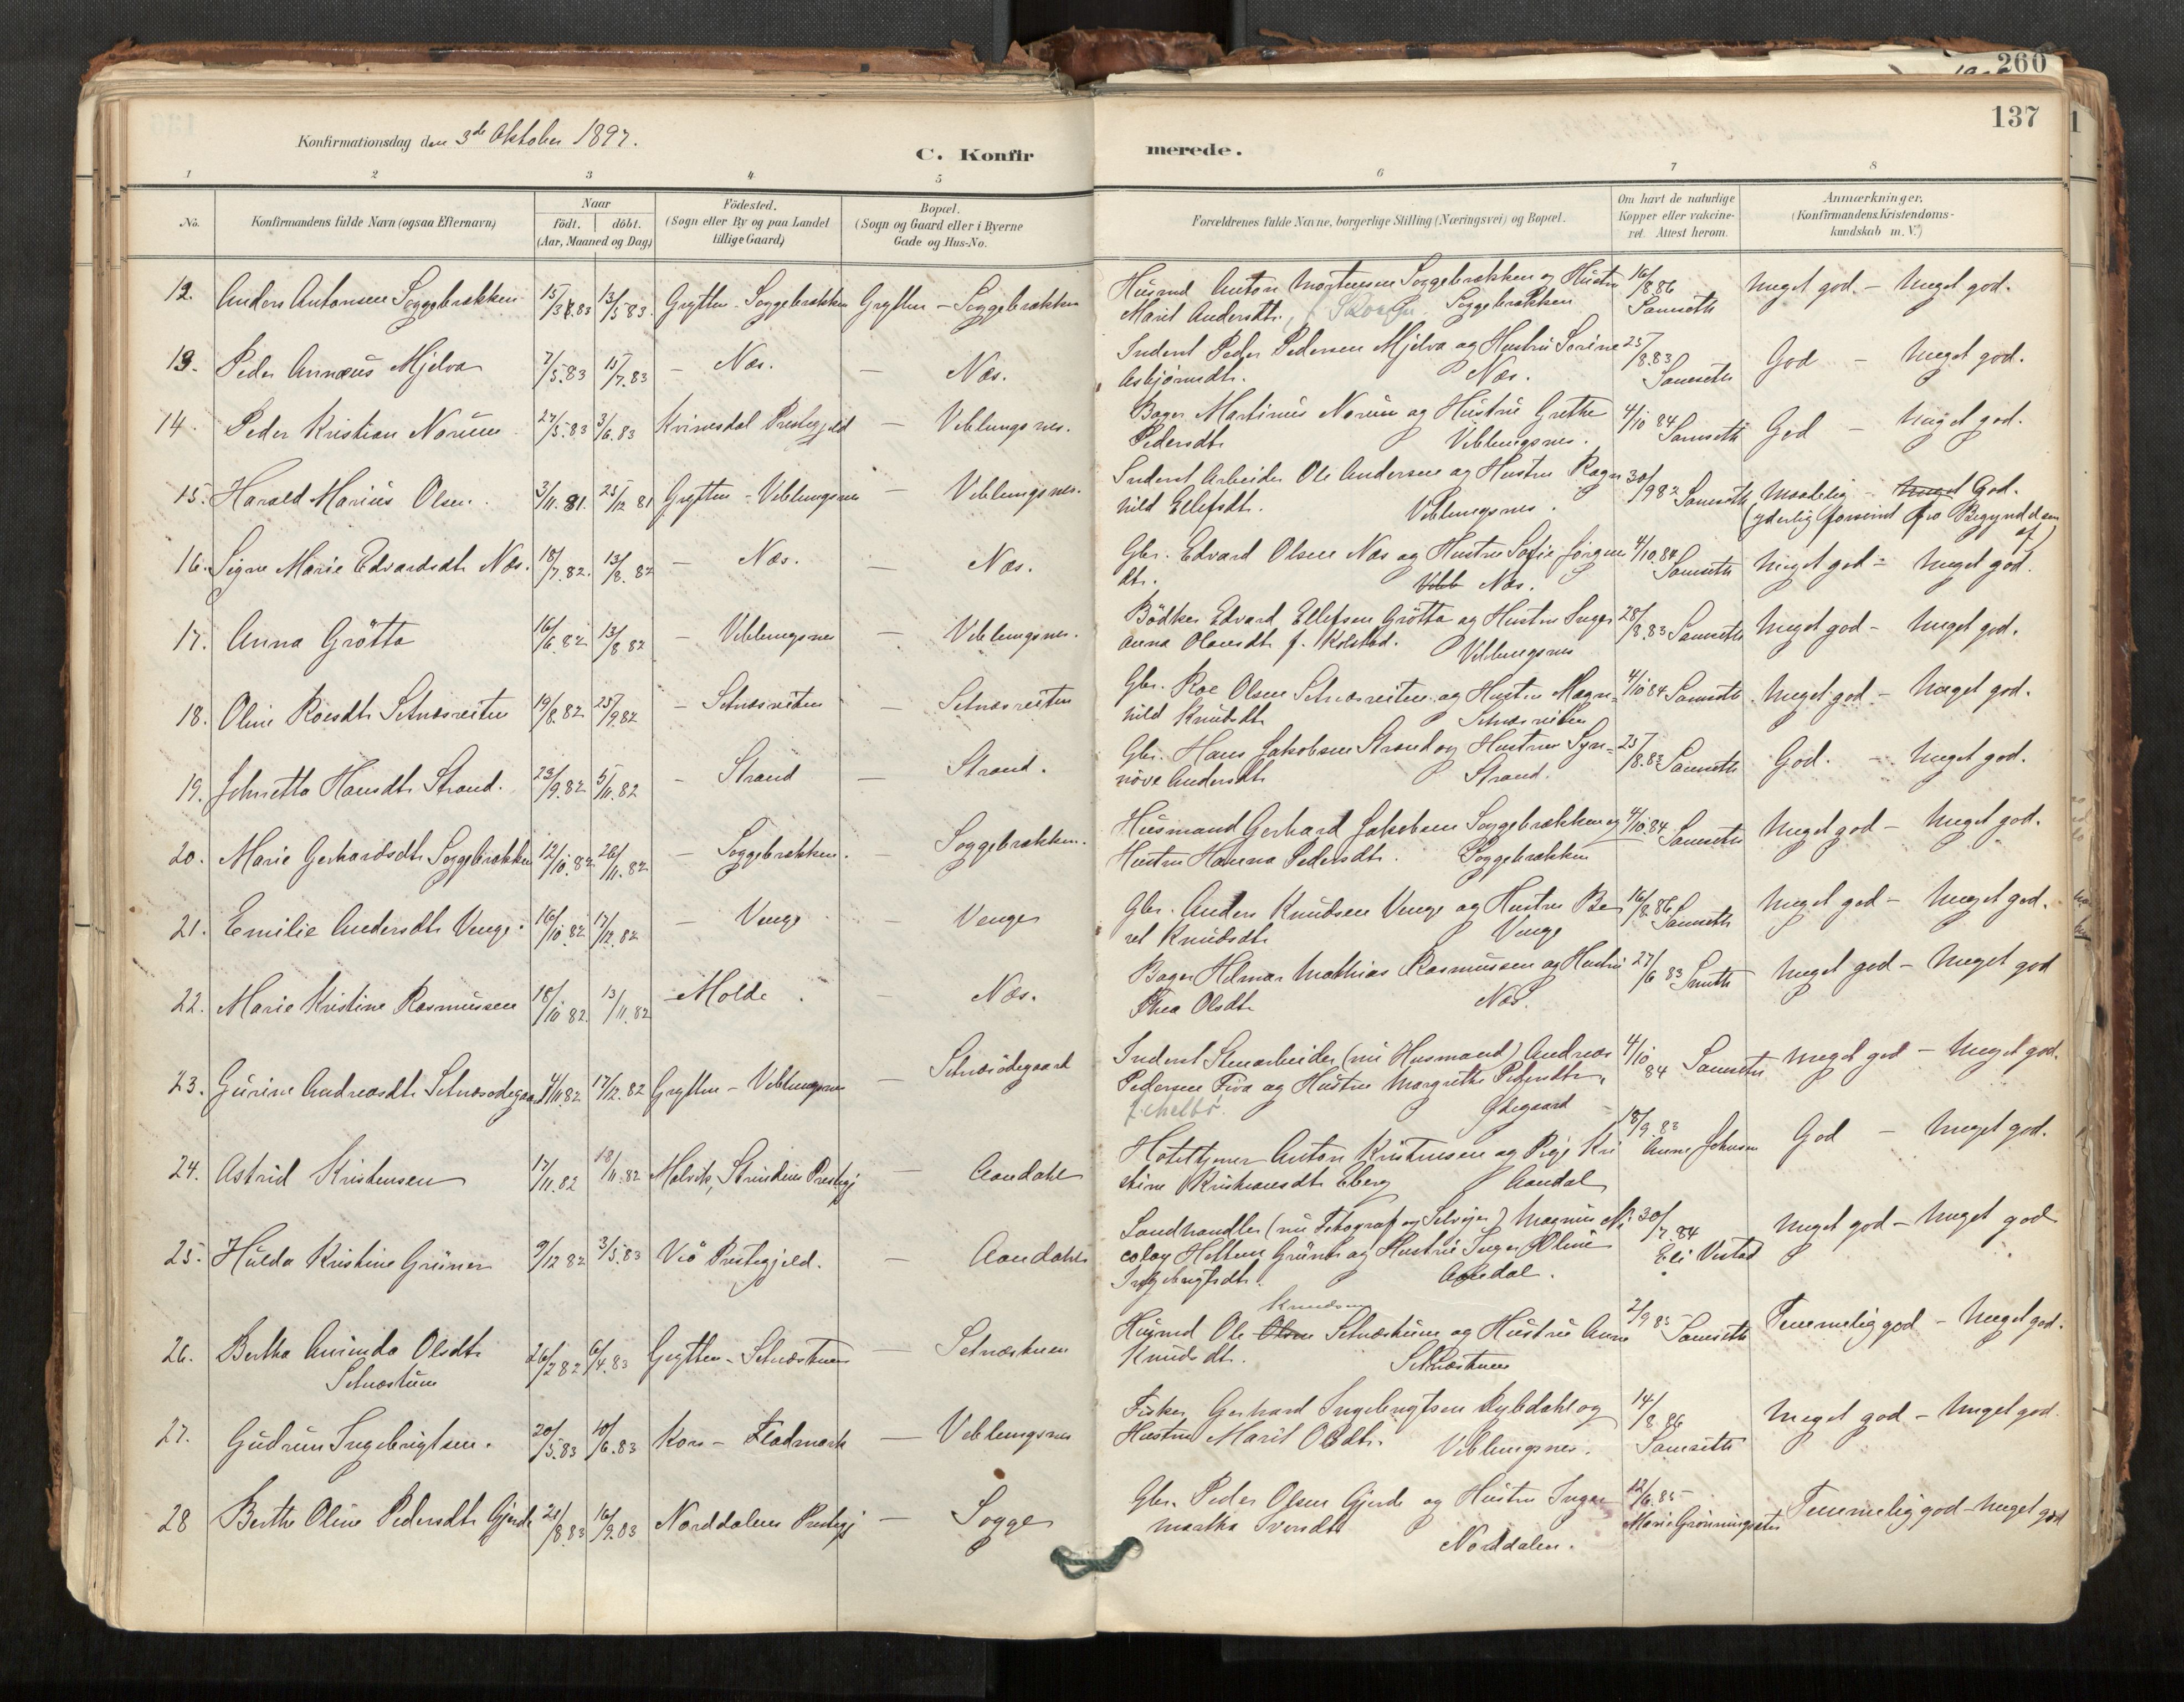 260
137
Konfirmationsdag den 3de Oktober 1897.
C. Konfirmerede.
1 2 3 4 5 6 7 8
No.
Konfirmandens fulde Navn (ogsaa Efternavn)
Naar
födt. | döbt.
(Aar, Maaned og Dag)
Födested.
(Sogn eller By og paa Landet tillige Gaard)
Bopæl.
(Sogn og Gaard eller i Byerne Gade og Hus-No.
Forældrenes fulde Navne, borgerlige Stilling (Næringsvei) og Bopæl.
Om havt de naturlige Kopper eller vakcineret. Attest herom.
Anmærkninger.
(Konfirmandens Kristendomskundskab m. V.)
12. Anders Antonsen Soggebrækken 15/3 83 13/5 83. Grytten - Soggebrækken Grytten - Soggebrækken Husmd Anton Mortensen Soggebrækken og Hustru 16/8 86 Meget god. - Meget god.
Marit Andersdt. Soggebrækken Samseth
13. Peder Annæus Mjelva 7/5.83 15/7.83 - Næs. - Næs. Inderst Peder Pedersen Mjelva og Hustru Sorine 25/8.83 God - Meget god.
Asbjørnsdt. Næs. Samseth
14. Peder Kristian Norum 27/5.83 3/6.83 Kvinesdal Prestegjeld - Veblungsnes. Bager Martinus Norum og Hustru Grethe 4/10 84 Samseth God - Meget god.
Pedersdt. Veblungsnes.
15. Harald Marius Olsen. 3/11.81. 25/12 81 Grytten - Veblungsnes - Veblungsnes. Inderst Arbeider Ole Andersen og Hustru Ragn 30/9 82 Samseth Maadelig - Meget God.
hild Ellefsdt. Veblungsnes. (yderlig forsømt fra Begyndelsen af)
16. Signe Marie Edvardsdt. Næs. 18/7.82. 13/8.82 - Næs. - Næs. Gbr. Edvard Olsen Næs og Hustru Sofie Jørgens 4/10.84 Samseth Meget god - Meget god.
dt. Vebl Næs.
17. Anna Grötta 16/6.82 13/8 82 - Veblungsnes - Veblungsnes. Bödker Edvard Ellefsen Grötta og Hustru Inger 28/8.83 Samseth Meget god - Meget god.
anna Olausdt. f. Kolstad. Veblungsnes
18. Oline Roesdt. Setnæsreiten 19/8.82 25/9.82 - Setnæsreiten - Setnæsreiten Gbr. Roe Olsen Setnæsreiten og Hustru Magn= 4/10 84 Samseth Meget god - Meget god.
hild Knudsdt. Setnæsreiten
19. Johnetta Hansdt. Strand. 23/9.82 5/11.82 - Strand - Strand. Gbr. Hans Jakobsen Strand og Hustru Syn= 25/8.83 Samseth God. - Meget god.
növe Andersdt. Strand.
20. Marie Gerhardsdt. Soggebrækken 12/10.82 26/11.82 - Soggebrækken. Soggebrækken. Husmand Gerhard Jakobsen Soggebrækken og 4/10.84 Samseth Meget god - Meget god.
Hustru Hanna Pedersdt. Soggebrækken
21. Emilie Andersdt. Venge. 16/10.82 17/12.82 - Venge Venge Gbr. Anders Knudsen Venge og Hustru Be 16/8.86 Samseth Meget god - Meget god.
ret Knudsdt. Venge
22. Marie Kristine Rasmussen 18/10 82. 13/11.82 - Molde. - Næs. Bager Helmar Mathias Rasmussen og Hustru 27/6 83 Meget god - Meget god
Thea Olsdt. Næs.
23. Gurine Andreasdt. Setnæsödegaard 4/11.82 17/12.82 Grytten - Veblungsnes - Setnæsödegaard Inderst Stenarbeider (nu Husmand) Andreas 4/10 84 Samseth Meget god - Meget god.
Pedersen Fiva og Hustru Margrethe
Ödegaard
24. Astrid Kristensen 17/11.82 18/11.82 Malvik, Strindens Prestegj - Aandahl Hoteltjener Anton Kristensen og Pige Kri 18/9.83 Anne Johnsen God - Meget god.
stine Kristiansdt. Eberg Aandal
25. Hulda Kristine Grüner 9/12 82 3/5.83 Prestegjeld. - Aandahl Landhandler (nu Fotograf og Selveier) Magnus Ni 30/7.84 Meget god - Meget god
colay Grüner og Hustru Inger Oline Eli Vestad
Ingebrigtsdt. Aandal.
26. Bertha Olsdt. 26/2 82 6/4.83 Grytten - Setnæstuen - Setnæstuen Husmd Ole Olsen Knudsen Setnæstuen og Hustru Anne 2/9 85 Samseth Temmelig god - Meget god.
Setnæstuen Knudsdt. Setnæstuen
27. Gudrun Ingebrigtsen. 20/5.83 10/6.83 Kors - Fladmark - Veblungsnes Fisker Gerhard Ingebrigtsen og 14/8.86 Meget god - Meget god.
Hustru Marit Olsdt. Veblungsnes. Samseth
28 Berthe Oline Pedersdt. Gjerde 21/8.83 16/9.83 Norddalens Prestegj - Sogge Gbr. Peder Olsen Gjerde og Hustru Inger 12/6.85 Temmelig god - Meget god
Martha Iversdt. Norddalen. Marie Grønningsæter